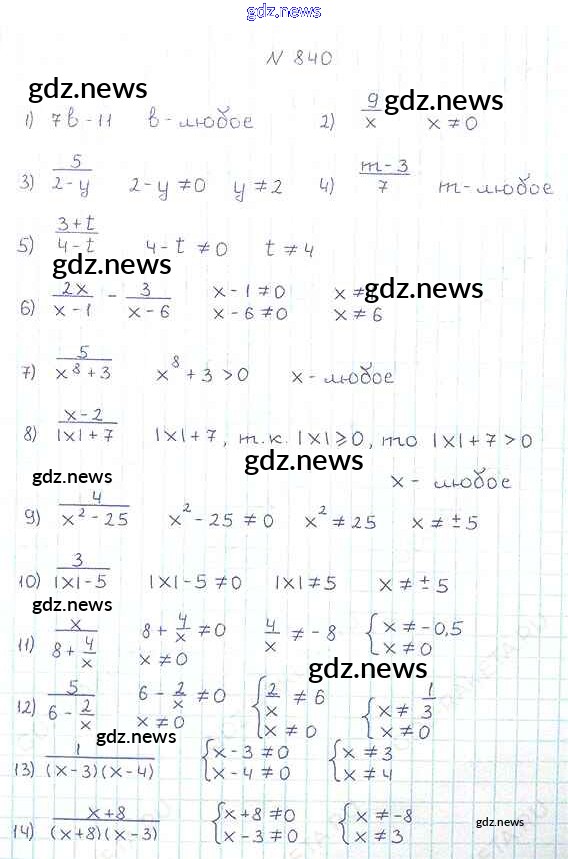 gdz.news
N 840
gdz.news
1) 7b - 11 b - любое 2) 9/x x ≠ 0 gdz.news
3) 5/(2 - y) 2 - y ≠ 0 y ≠ 2 4) (m - 3)/7 m - любое
5) (3 + t)/(4 - t) 4 - t ≠ 0 t ≠ 4
gdz.news
6) 2x/(x - 1) - 3/(x - 6) x - 1 ≠ 0 x ≠ gdz.news
x - 6 ≠ 0 x ≠ 6
7) 5/(x⁸ + 3) x⁸ + 3 > 0 x - любое
8) (x - 2)/(|x| + 7) |x| + 7, т.к. |x| ⩾ 0, то |x| + 7 > 0
gdz.news
x - любое
gdz.news
9) 4/(x² - 25) x² - 25 ≠ 0 x² ≠ 25 x ≠ ± 5
10) 3/(|x| - 5) |x| - 5 ≠ 0 |x| ≠ 5 x ≠ ± 5
gdz.news
11) x/(8 + 4/x) 8 + 4/x ≠ 0 4/x ≠ -8 { x ≠ -0,5
x ≠ 0 x ≠ 0
gdz.news
12) 5/(6 - 2/x) 6 - 2/x ≠ 0 { 2/x ≠ 6 { x ≠ 1/3
x ≠ 0 x ≠ 0 x ≠ 0
gdz.news
13) 1/((x - 3)(x - 4)) { x - 3 ≠ 0 { x ≠ 3
x - 4 ≠ 0 x ≠ 4
14) (x + 8)/((x + 8)(x - 3)) { x + 8 ≠ 0 { x ≠ -8
x - 3 ≠ 0 x ≠ 3
gdz.news